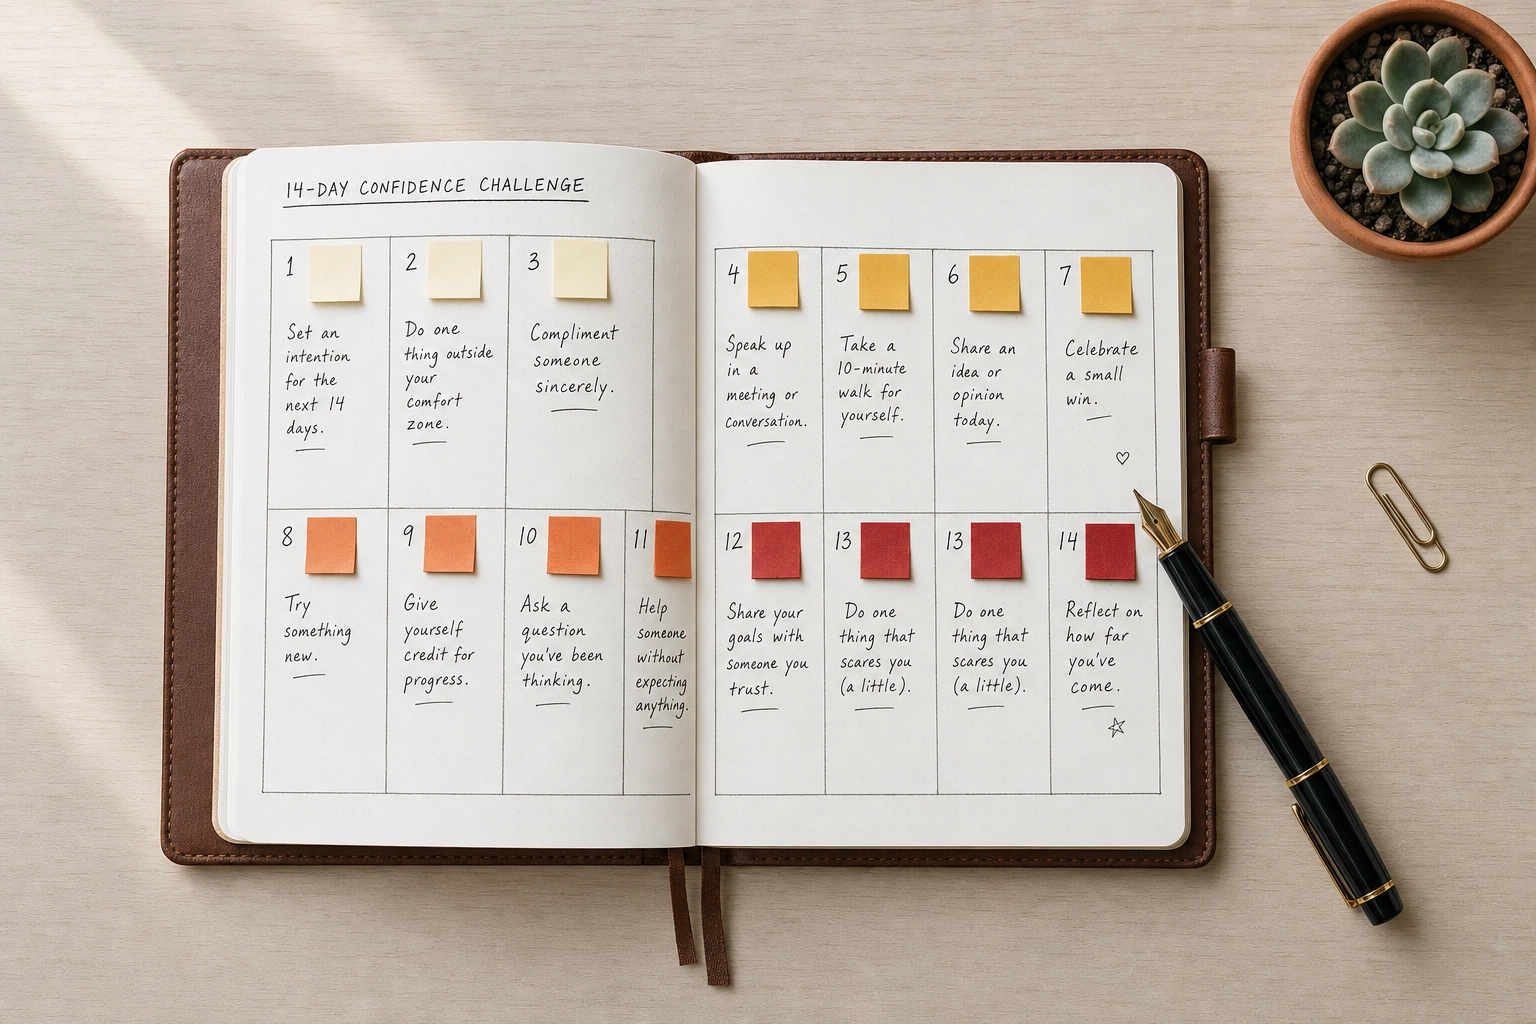 14-DAY CONFIDENCE CHALLENGE
1
Set an
intention
for the
next 14
days.
2
Do one
thing outside
your
comfort
zone.
3
Compliment
someone
sincerely.
4
Speak up
in a
meeting or
conversation.
5
Take a
10-minute
walk for
yourself.
6
Share an
idea or
opinion
today.
7
Celebrate
a small
win.
8
Try
something
new.
9
Give
yourself
credit for
progress.
10
Ask a
question
you've been
thinking.
11
Help
someone
without
expecting
anything.
12
Share your
goals with
someone you
trust.
13
Do one
thing that
scares you
(a little).
13
Do one
thing that
scares you
(a little).
14
Reflect on
how far
you've
come.